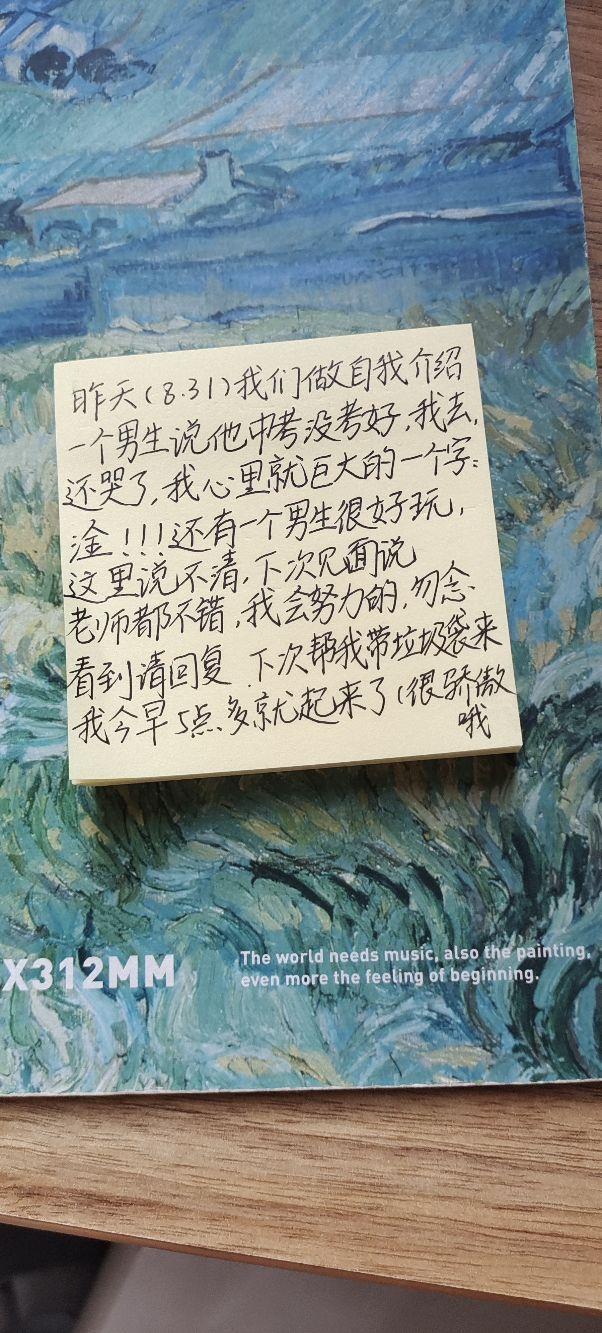 昨天(8.31)我们做自我介绍
一个男生说他中考没考好,我去,
还哭了,我心里就巨大的一个字:
淦!!!还有一个男生很好玩,
这里说不清,下次见面说
老师都不错,我会努力的,勿念.
看到请回复 下次帮我带垃圾袋来
我今早5点多就起来了(很骄傲
哦
X312MM
The world needs music, also the painting,
even more the feeling of beginning.